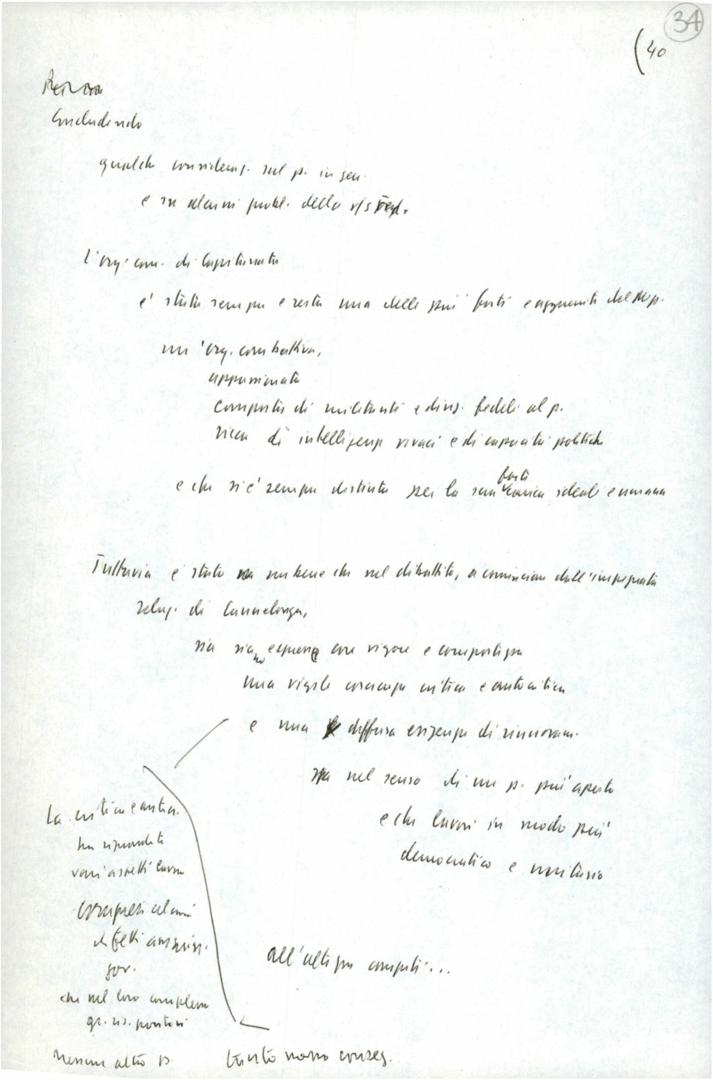 34
(40
Concludendo
qualche consideraz. sul p. in gen.
e su alcuni probl. della
L'org. com. di Capitanata
è stata sempre e resta una delle più forti e agguerrite del p.
un'org. combattiva,
appassionata
composta di militanti e dirig. fedeli al p.
ricca di intelligenze vivaci e di capacità politiche
e che si è sempre distinta per la sua forte carica ideale e umana
Tuttavia è stato un bene che nel dibattito, a cominciare dall'impegnata
relaz. di Cannelonga,
sia siano con vigore e
una vigile coscienza critica e autocritica
e una diffusa esigenza di rinnovam.
sia nel senso di un p. più aperto
e che lavori in modo più
democratico e unitario
all'altezza compiti...
La critica e autocr.
ha riguardato
vari aspetti lavoro
compresi alcuni
difetti amminis.
gov.
che nel loro complesso
positivi
nessun altro